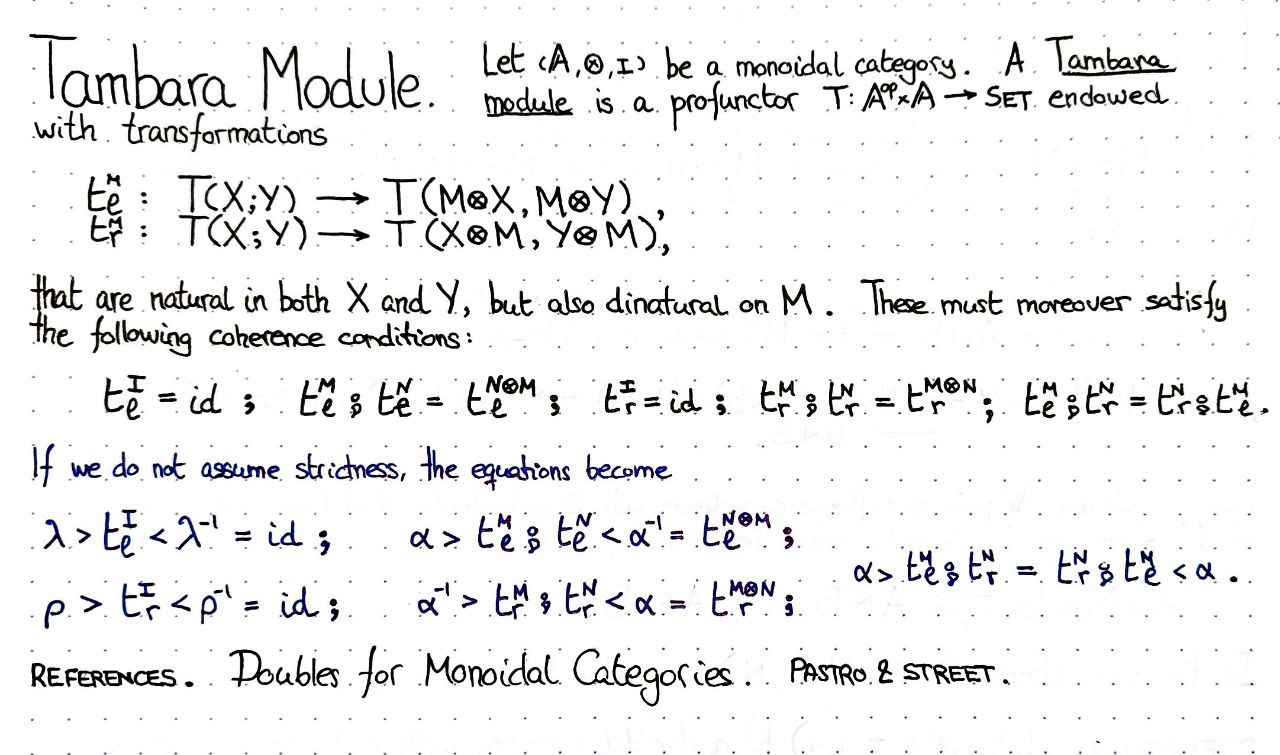 Tambara Module. Let (A,⊗,I) be a monoidal category. A Tambara
module is a profunctor T: Aᵒᵖ×A → SET endowed
with transformations
tₑᴹ : T(X;Y) → T(M⊗X, M⊗Y),
tᵣᴹ : T(X;Y) → T(X⊗M, Y⊗M),
that are natural in both X and Y, but also dinatural on M. These must moreover satisfy
the following coherence conditions:
tₑᴵ = id ; tₑᴹ ⨾ tₑᴺ = tₑᴺ⊗ᴹ ; tᵣᴵ = id ; tᵣᴹ ⨾ tᵣᴺ = tᵣᴹ⊗ᴺ ; tₑᴹ ⨾ tᵣᴺ = tᵣᴺ ⨾ tₑᴹ.
If we do not assume strictness, the equations become
λ > tₑᴵ < λ⁻¹ = id ; α > tₑᴹ ⨾ tₑᴺ < α⁻¹ = tₑᴺ⊗ᴹ ;
α > tₑᴹ ⨾ tᵣᴺ = tᵣᴺ ⨾ tₑᴹ < α.
ρ > tᵣᴵ < ρ⁻¹ = id ; α⁻¹ > tᵣᴹ ⨾ tᵣᴺ < α = tᵣᴹ⊗ᴺ ;
REFERENCES. Doubles for Monoidal Categories. PASTRO & STREET.